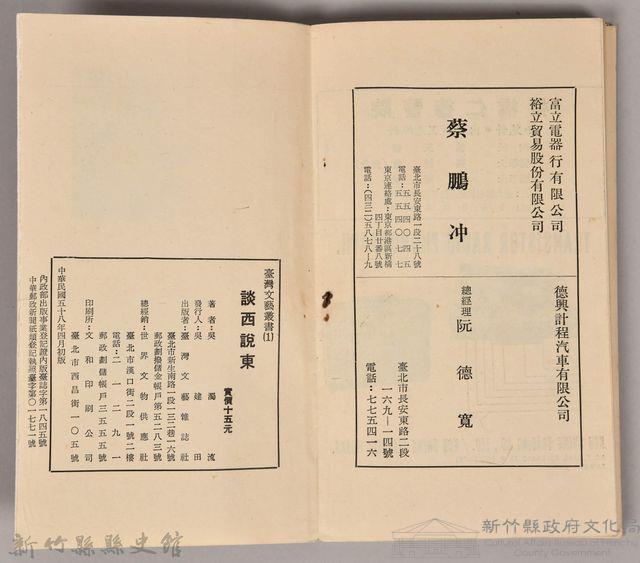 富立電器行有限公司
裕立貿易股份有限公司
蔡鵬冲
臺北市長安東路一段二十八號
電話：五五四〇四五
五五四〇七七
東京連絡處：東京都港區新橋
四丁目廿番八號
電話：(四三二)五八七八〜九
德興計程汽車有限公司
總經理 阮德寬
臺北市長安東路二段
一六九—一四號
電話：七七五四一六
臺灣文藝叢書(1)
談西說東
實價十五元
著者：吳濁流
發行人：吳建田
出版者：臺灣文藝雜誌社
臺北市新生南路一段一三二巷一六號
郵政劃撥儲金帳戶第五二八三號
總經銷：世界文物供應社
臺北市漢口街二段一號二樓
電話：二一一二九一
郵政劃儲帳戶三五五五號
印刷所：文和印刷公司
臺北市西昌街一〇五號
中華民國五十八年四月初版
內政部出版事業登記證內版臺誌字第一八四五號
中華郵政新聞紙類登記執照臺字第〇一七七一號
新竹縣縣史館
新竹縣政府文化局
Cultural Affairs Bureau of Hsinchu
County Government